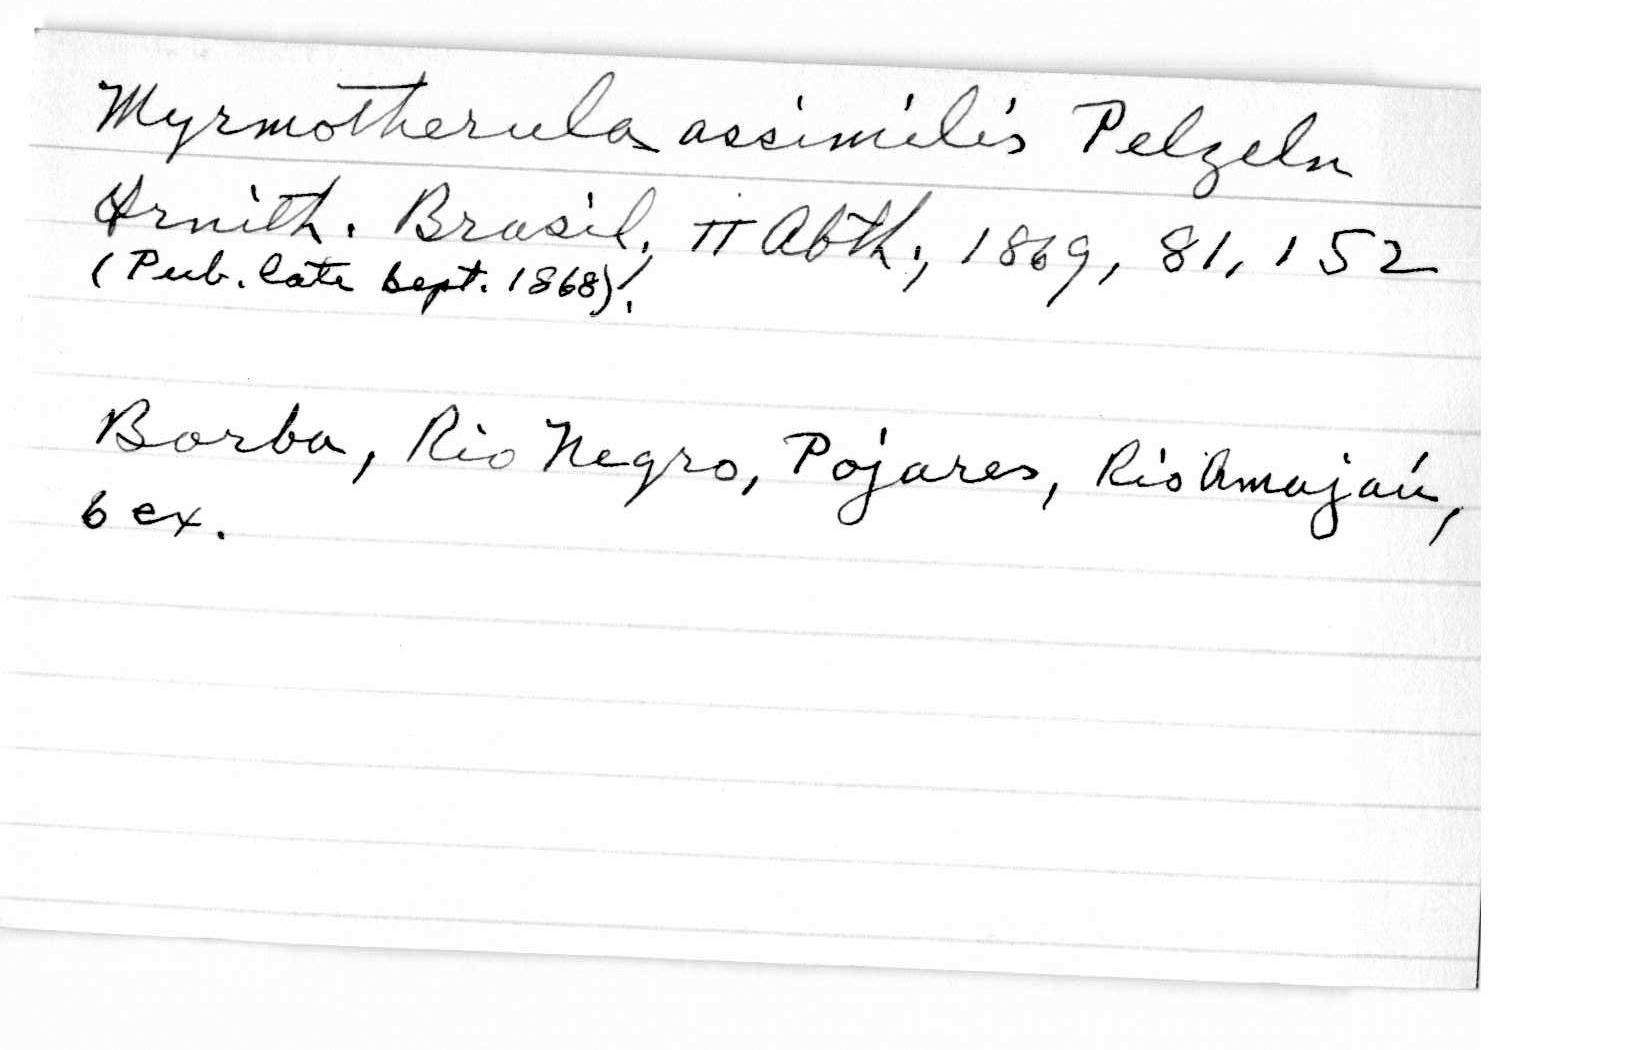 Myrmotherula assimilis Pelzeln
Ornith. Brasil, II Abth., 1869, 81, 152
(Pub. late Sept. 1868)!
Borba, Rio Negro, Pojares, Rio Amajaú,
6 ex.